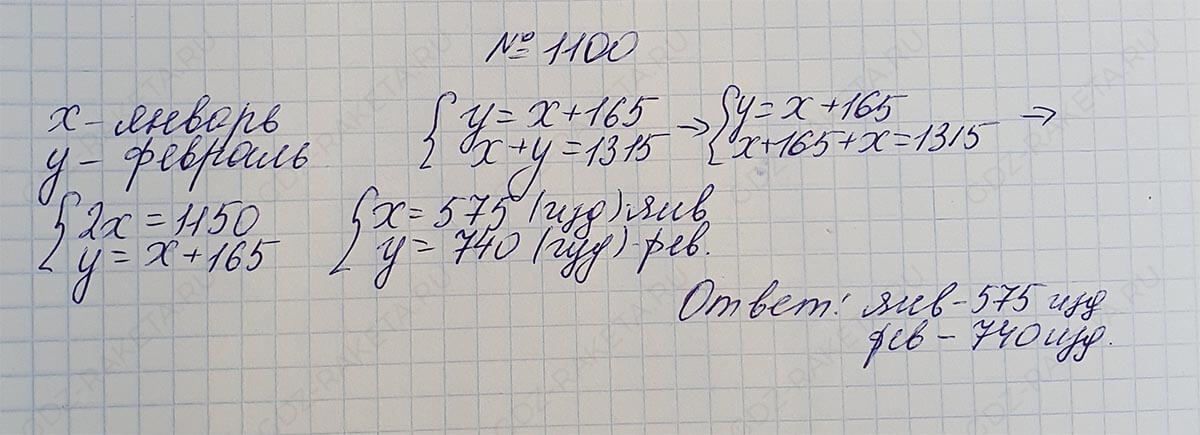 № 1100
x – январь
y – февраль
{ y = x + 165
x + y = 1315
→ { y = x + 165
x + 165 + x = 1315 →
{ 2x = 1150
y = x + 165
{ x = 575 (изд) янв
y = 740 (изд) - фев.
Ответ: янв – 575 изд
фев – 740 изд.
GDZ-RAKETA.RU